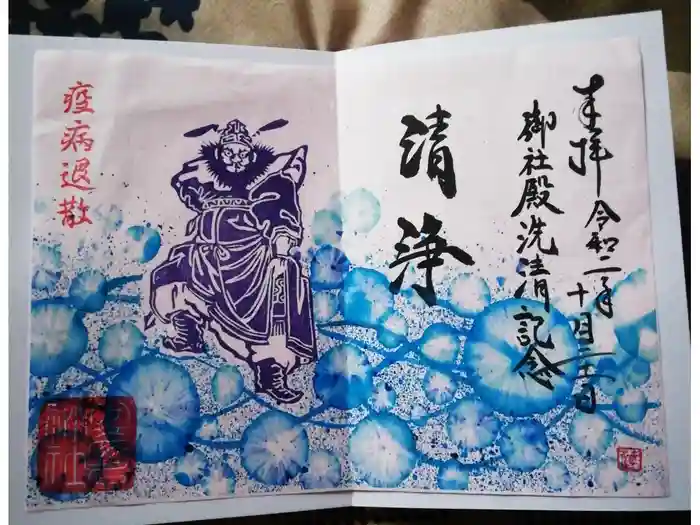 奉拝 令和二年十月二十一日
御社殿洗清記念
清浄
疫病退散